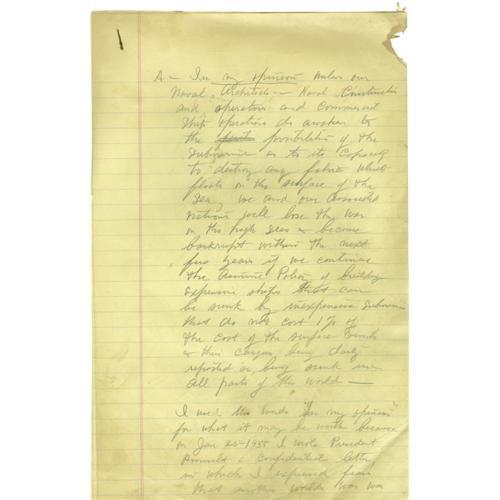 A - In my opinion unless our
Naval Architects - Naval Constructors
and operators and Commercial
Ship operators do awaken to
the possibilities of the
Submarine as to its capacity
to destroy any fabric which
floats on the surface of the
Sea, we and our associated
nations will lose the war
on the high seas & become
bankrupt within the next
few years if we continue
the Policy of building
Expensive ships that can
be sunk by inexpensive Submarines
that do not cost 1% of
the cost of the surface
& their Cargoes, being daily
reported as being sunk in
all parts of the World -
I used the words "In my opinion"
for what it may be worth because
on Jan 25 - 1935 I wrote President
Roosevelt a Confidential letter
in which I expressed fears
that another worlds war was